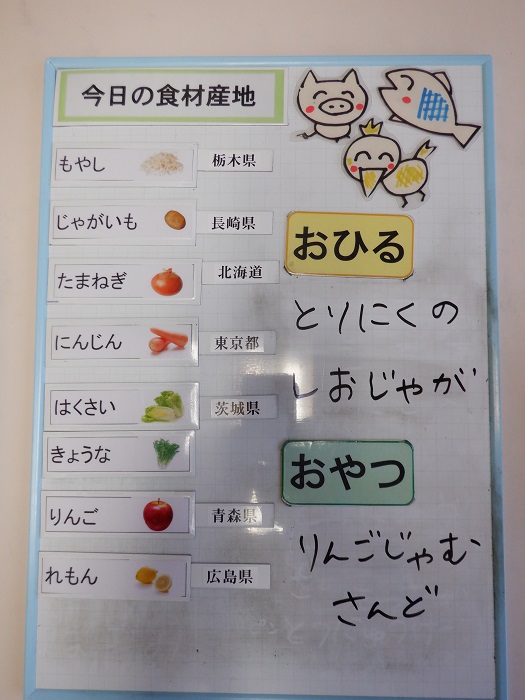 今日の食材産地
もやし 栃木県
じゃがいも 長崎県
たまねぎ 北海道
にんじん 東京都
はくさい 茨城県
きょうな
りんご 青森県
れもん 広島県
おひる
とりにくの
しおじゃが
おやつ
りんごじゃむ
さんど